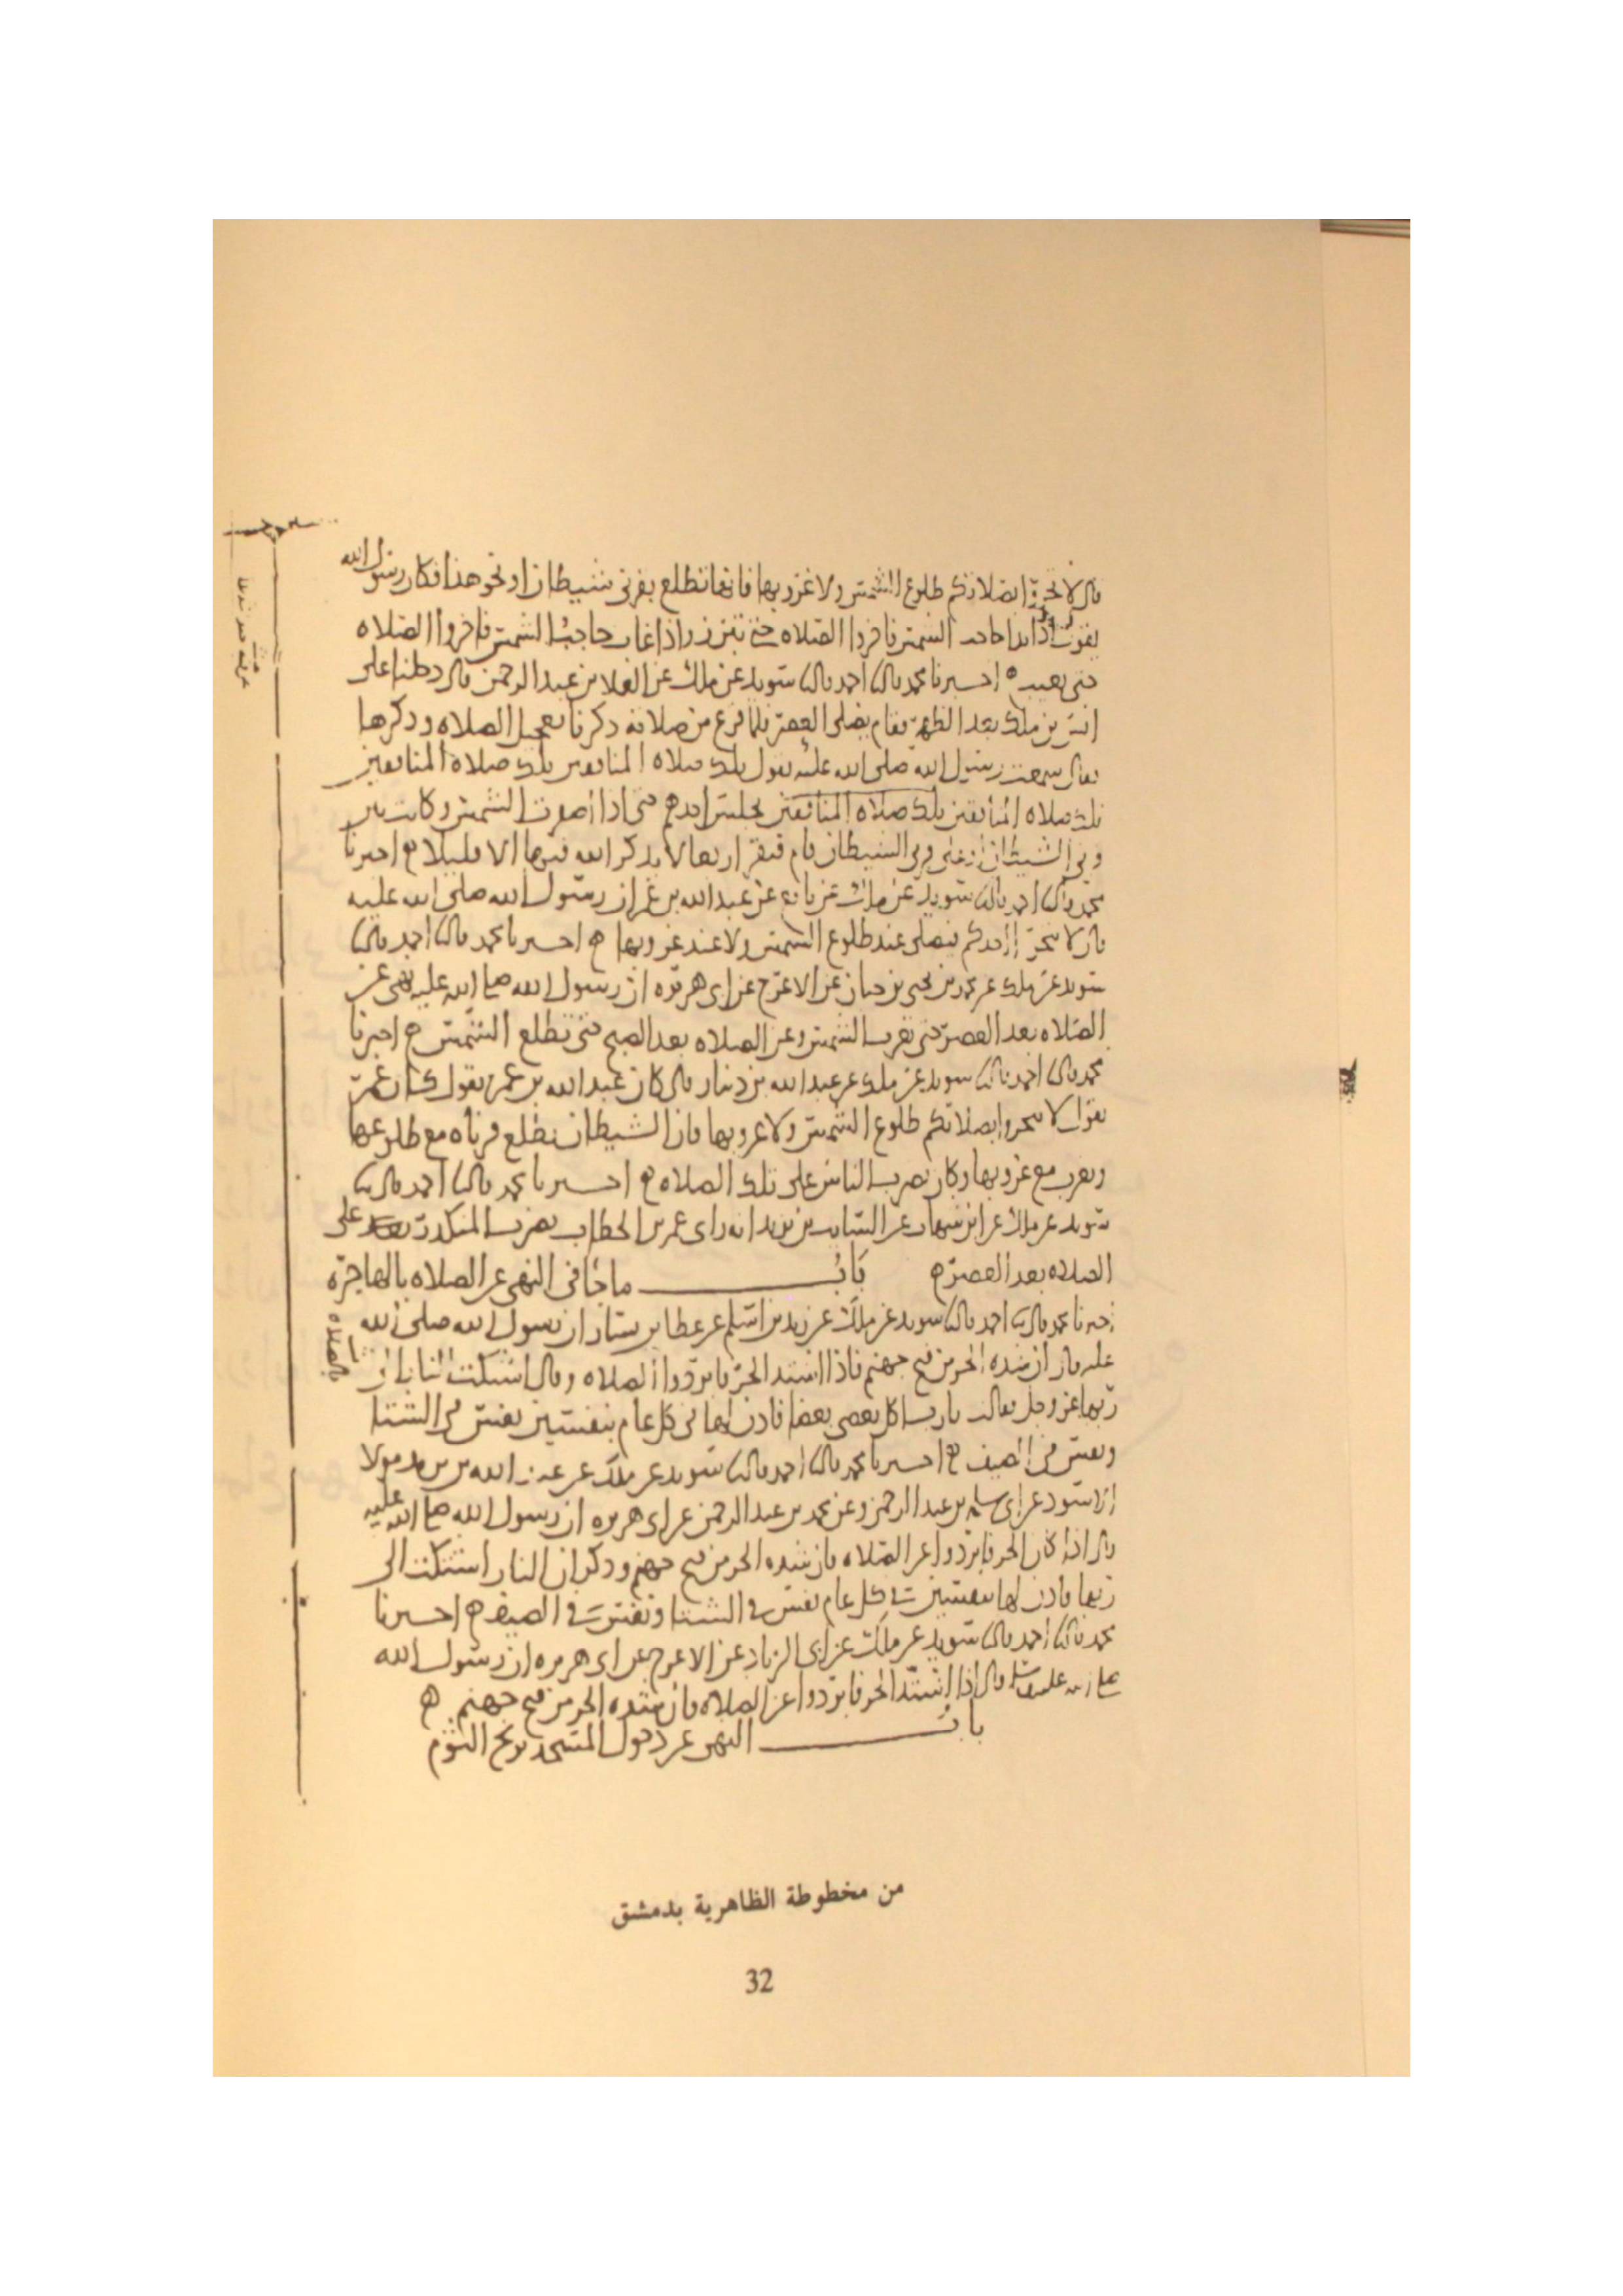 قال لا تحروا بصلاتكم طلوع الشمس ولا غروبها فانها تطلع بقرني شيطان او نحو هذا فكان رسول الله
يقول اذا بدا حاجب الشمس فاخروا الصلاه حتى تبرز واذا غاب حاجب الشمس فاخروا الصلاه
حتى تغيب ه اخبرنا محمد قال احمد قال سويد عن ملك عن العلا بن عبد الرحمن قال دخلنا على
انس بن ملك بعد الظهر فقام يصلي العصر فلما فرغ من صلاته ذكرنا تعجيل الصلاه وذكرها
فقال سمعت رسول الله صلى الله عليه يقول تلك صلاه المنافقين تلك صلاه المنافقين
تلك صلاه المنافقين تلك صلاه المنافقين يجلس احدهم حتى اذا اصفرت الشمس وكانت بين
قرني الشيطان او على قرني الشيطان قام فنقر اربعا لا يذكر الله فيها الا قليلا ه اخبرنا
محمد قال احمد قال سويد عن ملك عن نافع عن عبد الله بن عمر ان رسول الله صلى الله عليه
قال لا يتحرا احدكم فيصلي عند طلوع الشمس ولا عند غروبها ه اخبرنا محمد قال احمد قال
سويد عن ملك عن محمد بن يحيى بن حبان عن الاعرج عن ابي هريره ان رسول الله صلى الله عليه نهى عن
الصلاه بعد العصر حتى تغرب الشمس وعن الصلاه بعد الصبح حتى تطلع الشمس ه اخبرنا
محمد قال احمد قال سويد عن ملك عن عبد الله بن دينار قال كان عبد الله بن عمر يقول كان عمر
يقول لا تحروا بصلاتكم طلوع الشمس ولا غروبها فان الشيطان تطلع قرناه مع طلوعها
وتغرب مع غروبها وكان يضرب الناس على تلك الصلاه ه اخبرنا محمد قال احمد قال
سويد عن ملك عن ابن شهاب عن السايب بن يزيد انه راى عمر بن الخطاب يضرب المنكدر على
الصلاه بعد العصر ه باب ما جا في النهي عن الصلاه بالهاجره
اخبرنا محمد قال احمد قال سويد عن ملك عن زيد بن اسلم عن عطا بن يسار ان رسول الله صلى الله
عليه قال ان شده الحر من فيح جهنم فاذا اشتد الحر فابردوا الصلاه وقال اشتكت النار الى
ربها عز وجل فقالت يا رب اكل بعضي بعضا فاذن لها في كل عام بنفسين نفس في الشتا
ونفس في الصيف ه اخبرنا محمد قال احمد قال سويد عن ملك عن عبد الله بن يزيد مولا
الاسود عن ابي سلمه بن عبد الرحمن وعن محمد بن عبد الرحمن عن ابي هريره ان رسول الله صلى الله عليه
قال اذا كان الحر فابردوا عن الصلاه فان شده الحر من فيح جهنم وذكر ان النار اشتكت الى
ربها فاذن لها بنفسين في كل عام نفس في الشتا ونفس في الصيف ه اخبرنا
محمد قال احمد قال سويد عن ملك عن ابي الزناد عن الاعرج عن ابي هريره ان رسول الله
صلى الله عليه قال اذا اشتد الحر فابردوا عن الصلاه فان شده الحر من فيح جهنم ه
باب النهي عن دخول المسجد بريح الثوم
من مخطوطة الظاهرية بدمشق
32